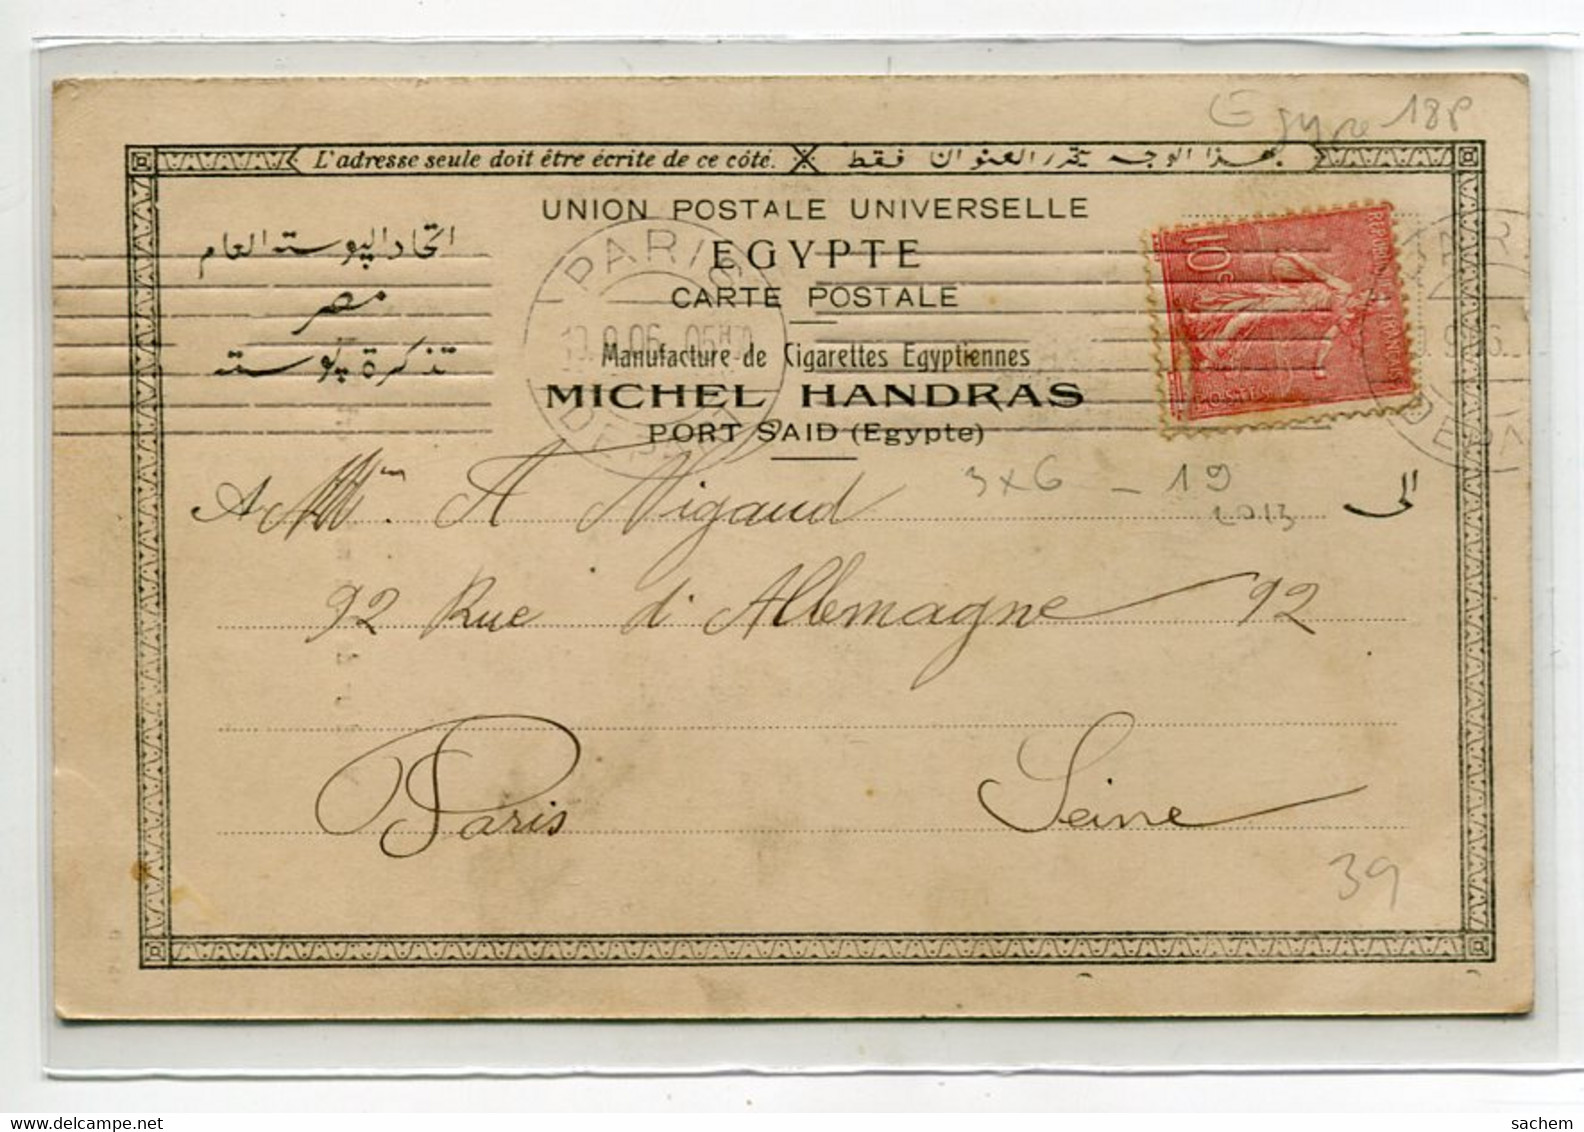 Egypte 18P
L'adresse seule doit être écrite de ce côté.
بهذا الوجه يحرر العنوان فقط
UNION POSTALE UNIVERSELLE
EGYPTE
CARTE POSTALE
اتحاد البوسته العام
مصر
تذكرة بوسته
Manufacture de Cigarettes Egyptiennes
MICHEL HANDRAS
PORT SAID (Egypte)
PARIS
10c
POSTES
3x6 - 19
2013
الى
A Mm. A Nigaud
92 Rue d'Allemagne 92
Paris Seine
39
sachem